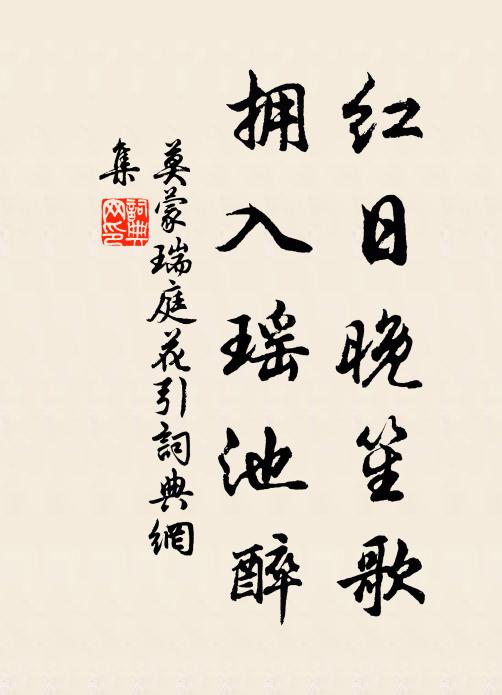 红日晚笙歌
拥入瑶池醉
莫蒙瑞庭花引詞典網
集
詞典
网印